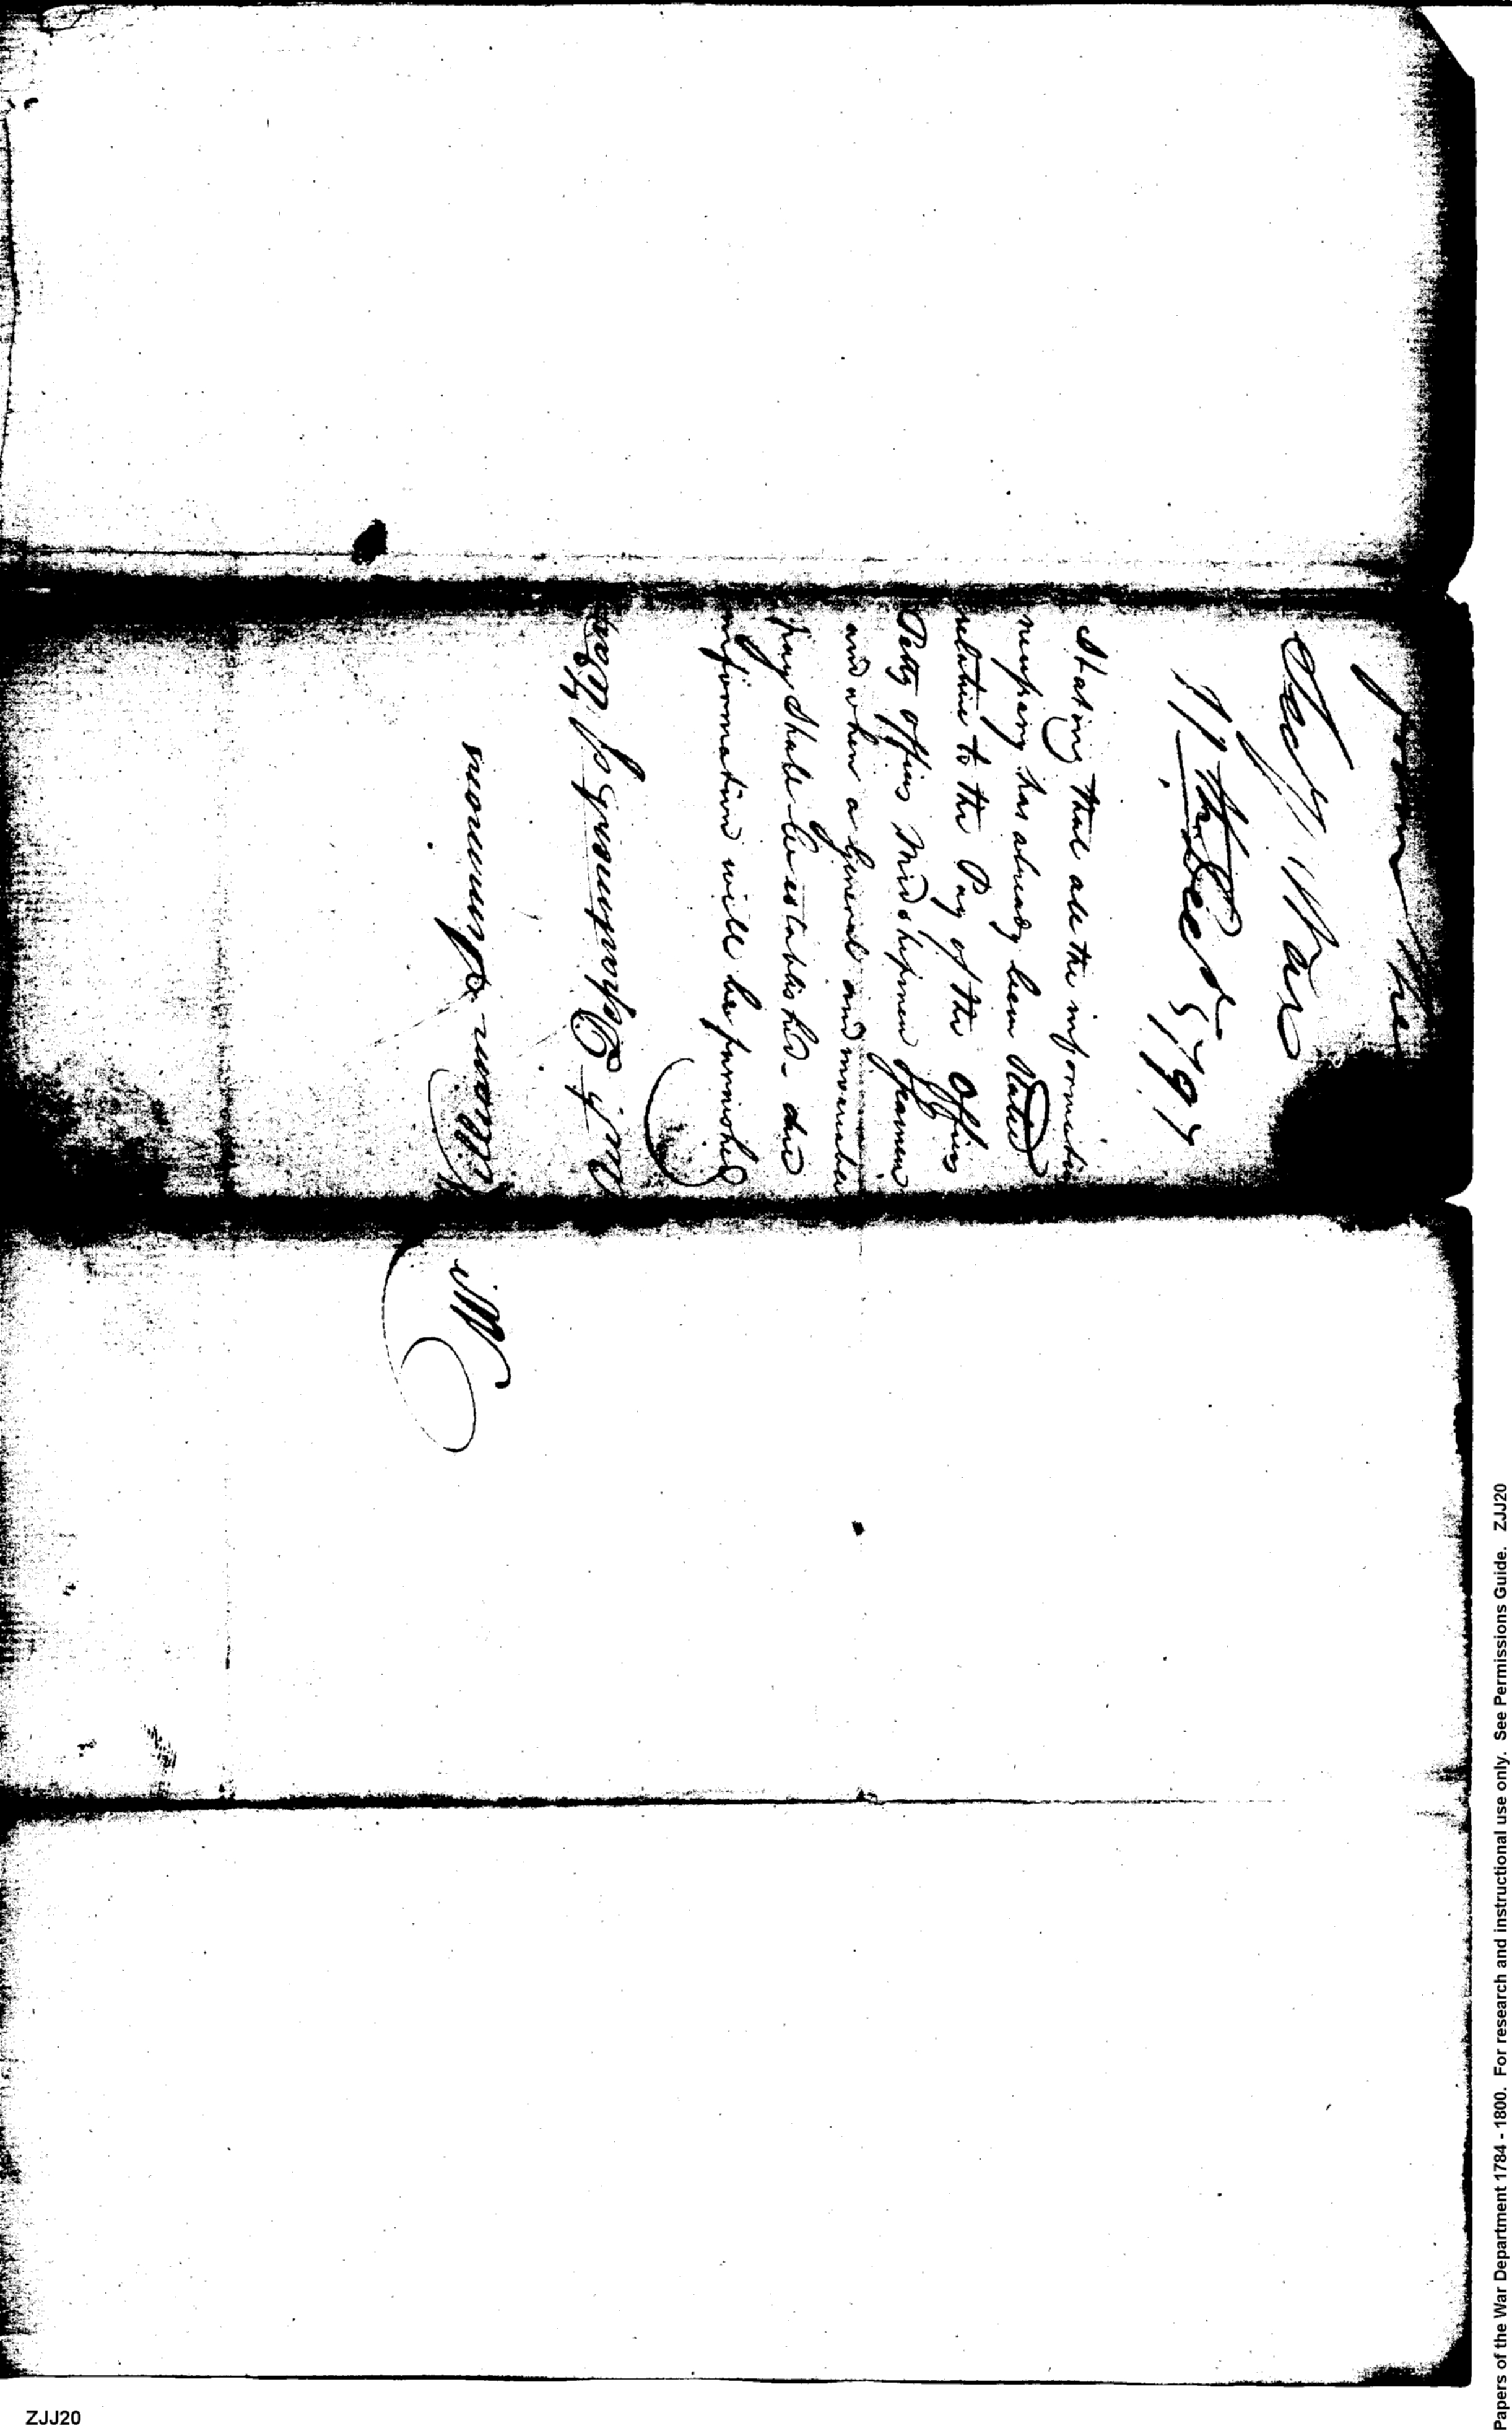 from the
Secy War
17th Decr 1797
Stating that all the informatio
necessary has already been Stated
relative to the Pay of the Officers
Petty officers Midshipmen Seamen
and when a general and invariable
pay Shall be established due
information will be furnished
Accountant of the
War
ZJJ20
Papers of the War Department 1784 - 1800. For research and instructional use only. See Permissions Guide. ZJJ20